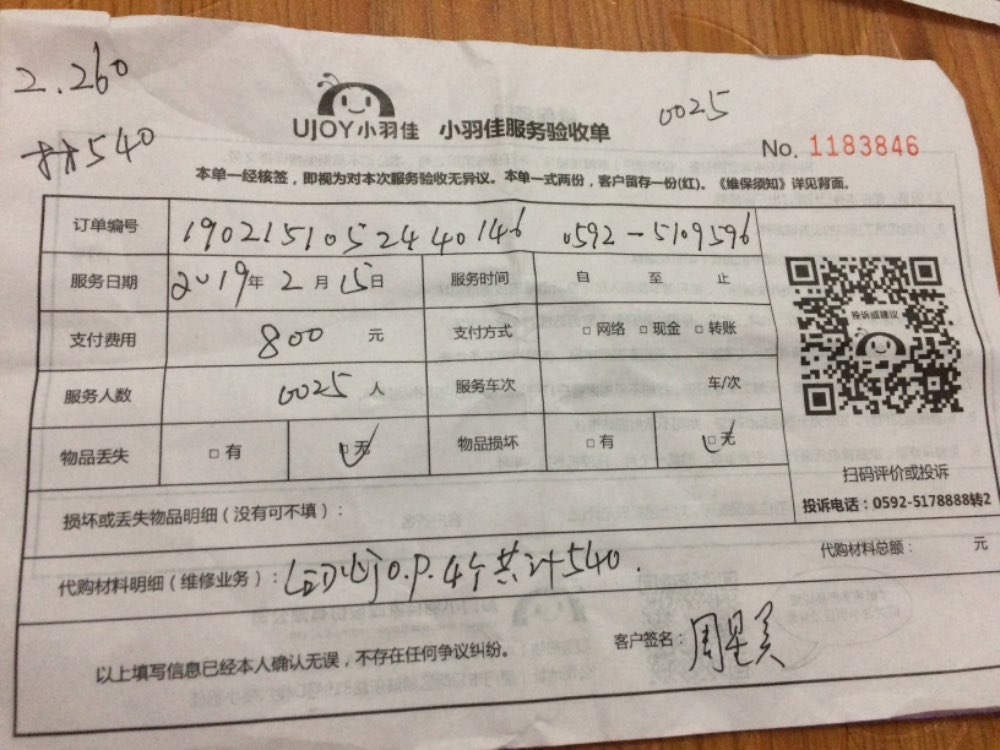 2.260
0025
材540
UJOY小羽佳 小羽佳服务验收单
No. 1183846
本单一经核签，即视为对本次服务验收无异议。本单一式两份，客户留存一份(红)。《维保须知》详见背面。
订单编号 190215105244 40146 0592-5109596
服务日期 2019年 2月 15日 服务时间 自 至 止
支付费用 800 元 支付方式 □网络 □现金 □转账
投诉或建议
服务人数 0025 人 服务车次 车/次
物品丢失 □有 □无 物品损坏 □有 □无
扫码评价或投诉
投诉电话：0592-5178888转2
损坏或丢失物品明细（没有可不填）：
代购材料明细（维修业务）：LED 4个共计540.
代购材料总额： 元
以上填写信息已经本人确认无误，不存在任何争议纠纷。
客户签名：周星